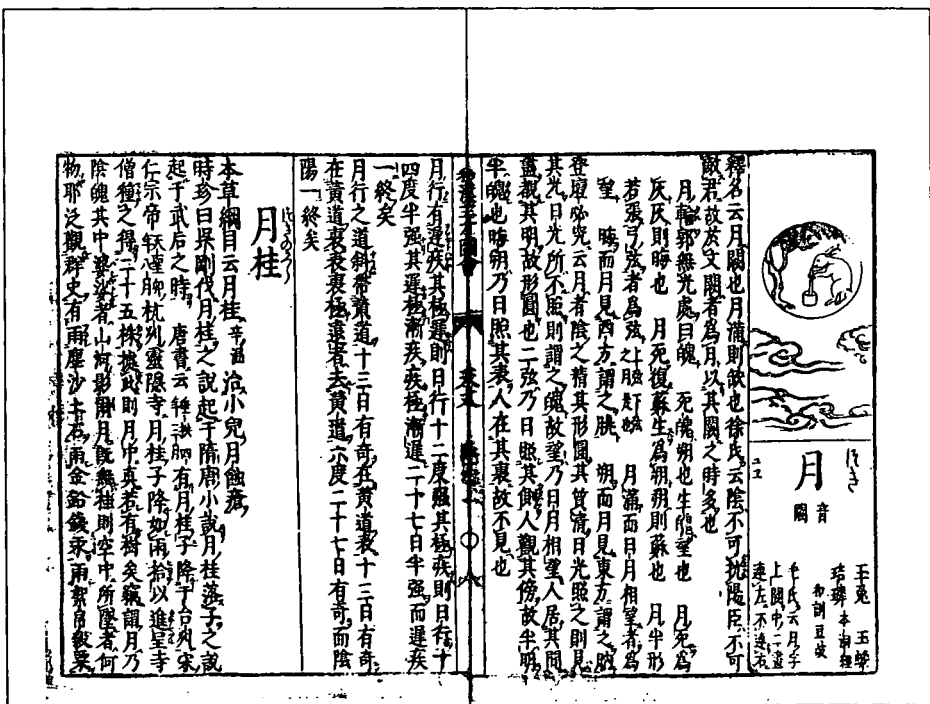 つき
月
音
闕
玉兔 玉蟾
和訓豆岐
毛氏云月字
上闕中二畫
連左不連右
釋名云月闕也月滿則缺也徐氏云陰不可抗陽臣不可
敵君故於文闕者為月以其闕之時多也
月輪郭無光處曰魄 死魄朔也生魄望也 月死為
灰灰則晦也 月死復蘇生為朔朔則蘇也 月半形
若張弓弦者為弦 上弦 下弦 月滿而日月相望者為
望 晦而月見西方謂之朓 朔而月見東方謂之朒
登壇必究云月者陰之精其形圓其質清日光照之則見
其光日光所不照則謂之魄故望乃日月相望人居其間
盡覩其明故形圓也二弦乃日照其側人觀其傍故半明
半魄也晦朔乃日照其表人在其裏故不見也
月行有遲疾其極遲則日行十二度強其極疾則日行十
四度半強其遲極漸疾疾極漸遲二十七日半強而遲疾
一終矣
月行之道斜帶黃道十三日有奇在黃道表十三日有奇
在黃道裏表裏極遠者去黃道六度二十七日有奇而陰
陽一終矣
月桂
本草綱目云月桂 辛溫 治小兒月蝕瘡
時珍曰吳剛伐月桂之說起于隋唐小說月桂落子之說
起于武后之時 唐書云 有月桂子降于台州宋
仁宗帝 杭州靈隱寺月桂子降如雨拾以進呈寺
僧種之得二十五株據此則月中真若有樹矣竊謂月乃
陰魄其中婆娑者山河影爾月既無桂則空中所墜者何
物耶泛觀群史有雨塵沙土石雨金鉛錢汞雨絮帛穀粟